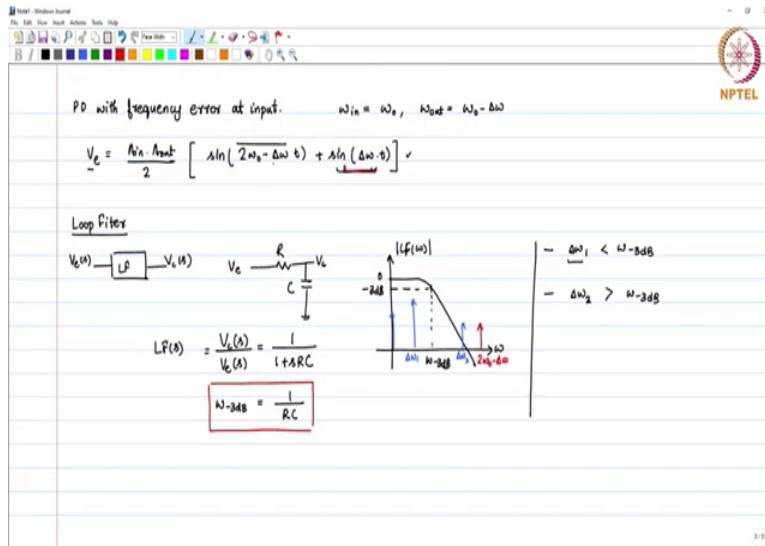 Note1 - Windows Journal
File Edit View Insert Actions Tools Help
Page Width
NPTEL
PD with frequency error at input. ω_in = ω_0, ω_out = ω_0 - Δω
V_e = A_in · A_out / 2 [ sin( 2ω_0 - Δω t) + sin (Δω · t) ]
Loop Filter
V_e(s) LF V_c(s)
V_e R V_c
C
LF(s) = V_c(s) / V_e(s) = 1 / 1 + sRC
ω-3dB = 1 / RC
|LF(ω)|
0
-3dB
Δω_1 ω-3dB Δω_2 2ω_0-Δω ω
- Δω_1 < ω-3dB
- Δω_2 > ω-3dB
1/1